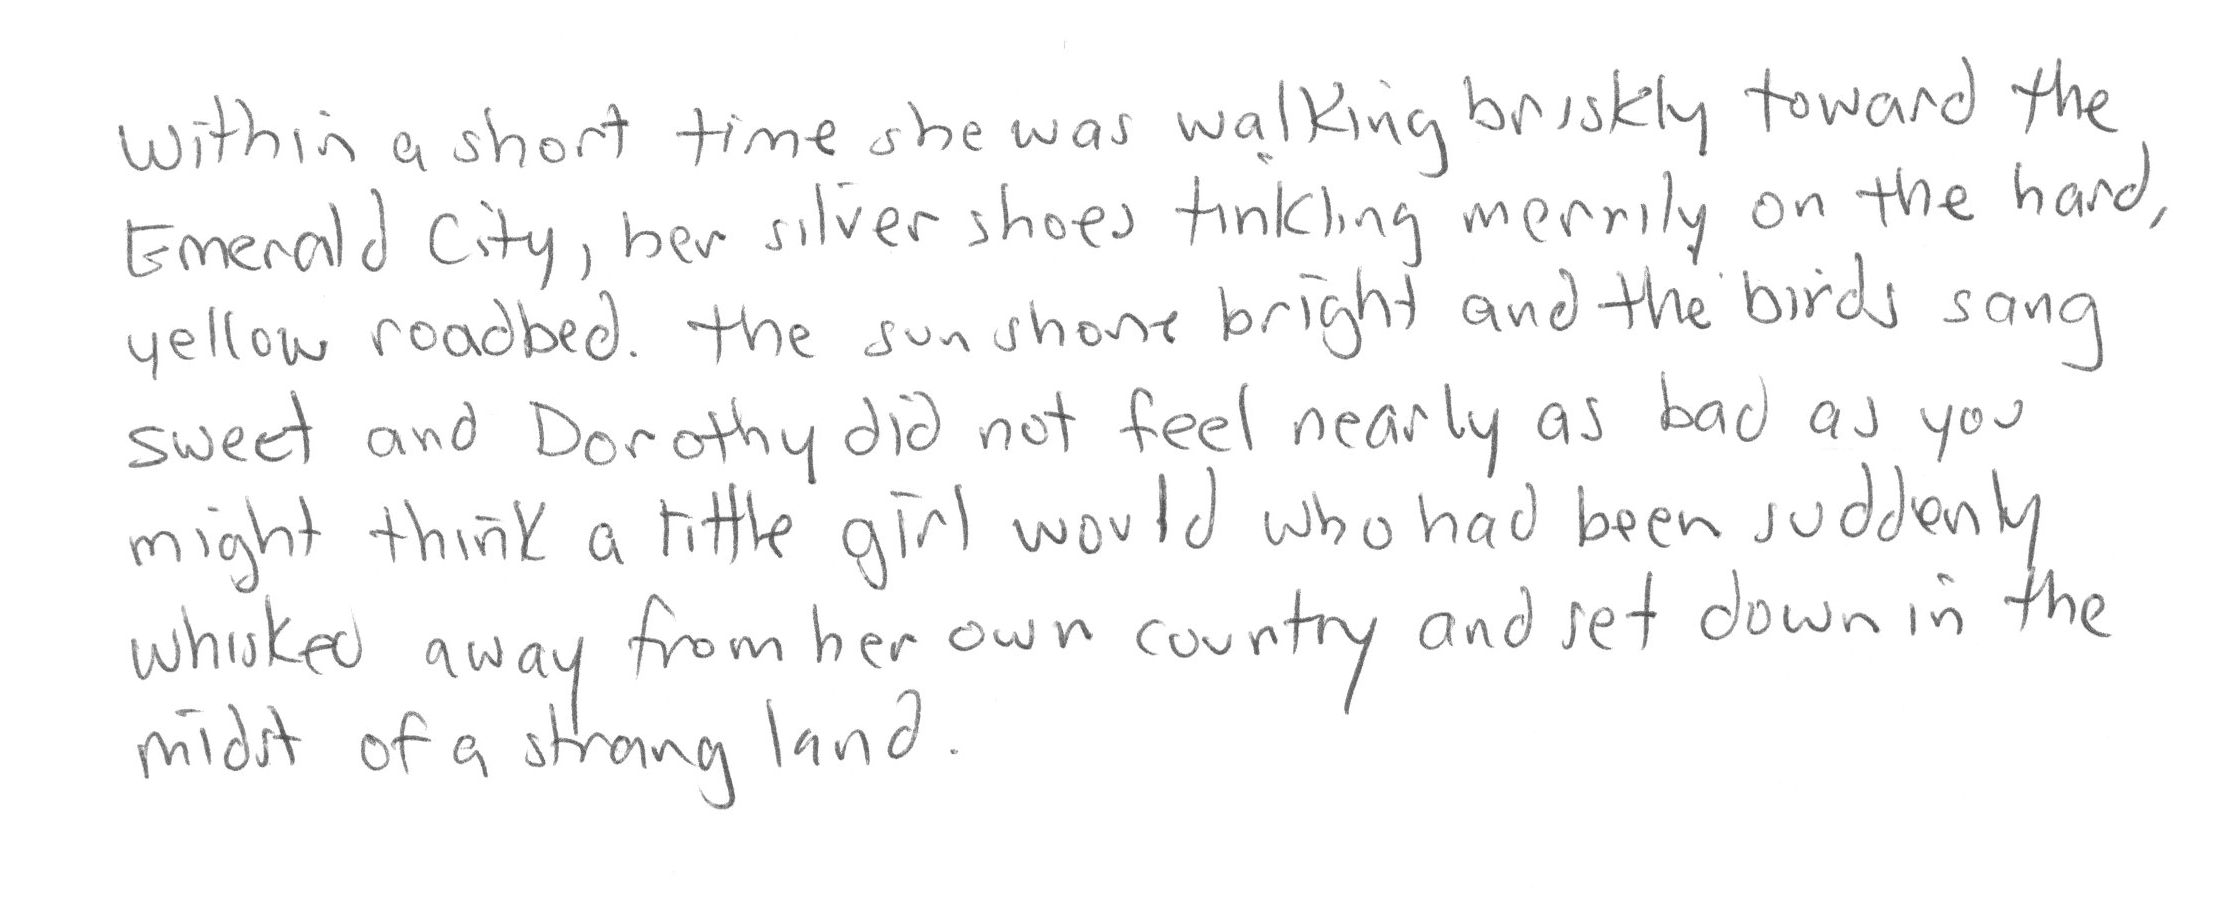 Within a short time she was walking briskly toward the
Emerald City, her silver shoes tinkling merrily on the hard,
yellow roadbed. The sun shone bright and the birds sang
sweet and Dorothy did not feel nearly as bad as you
might think a little girl would who had been suddenly
whisked away from her own country and set down in the
midst of a strang land.